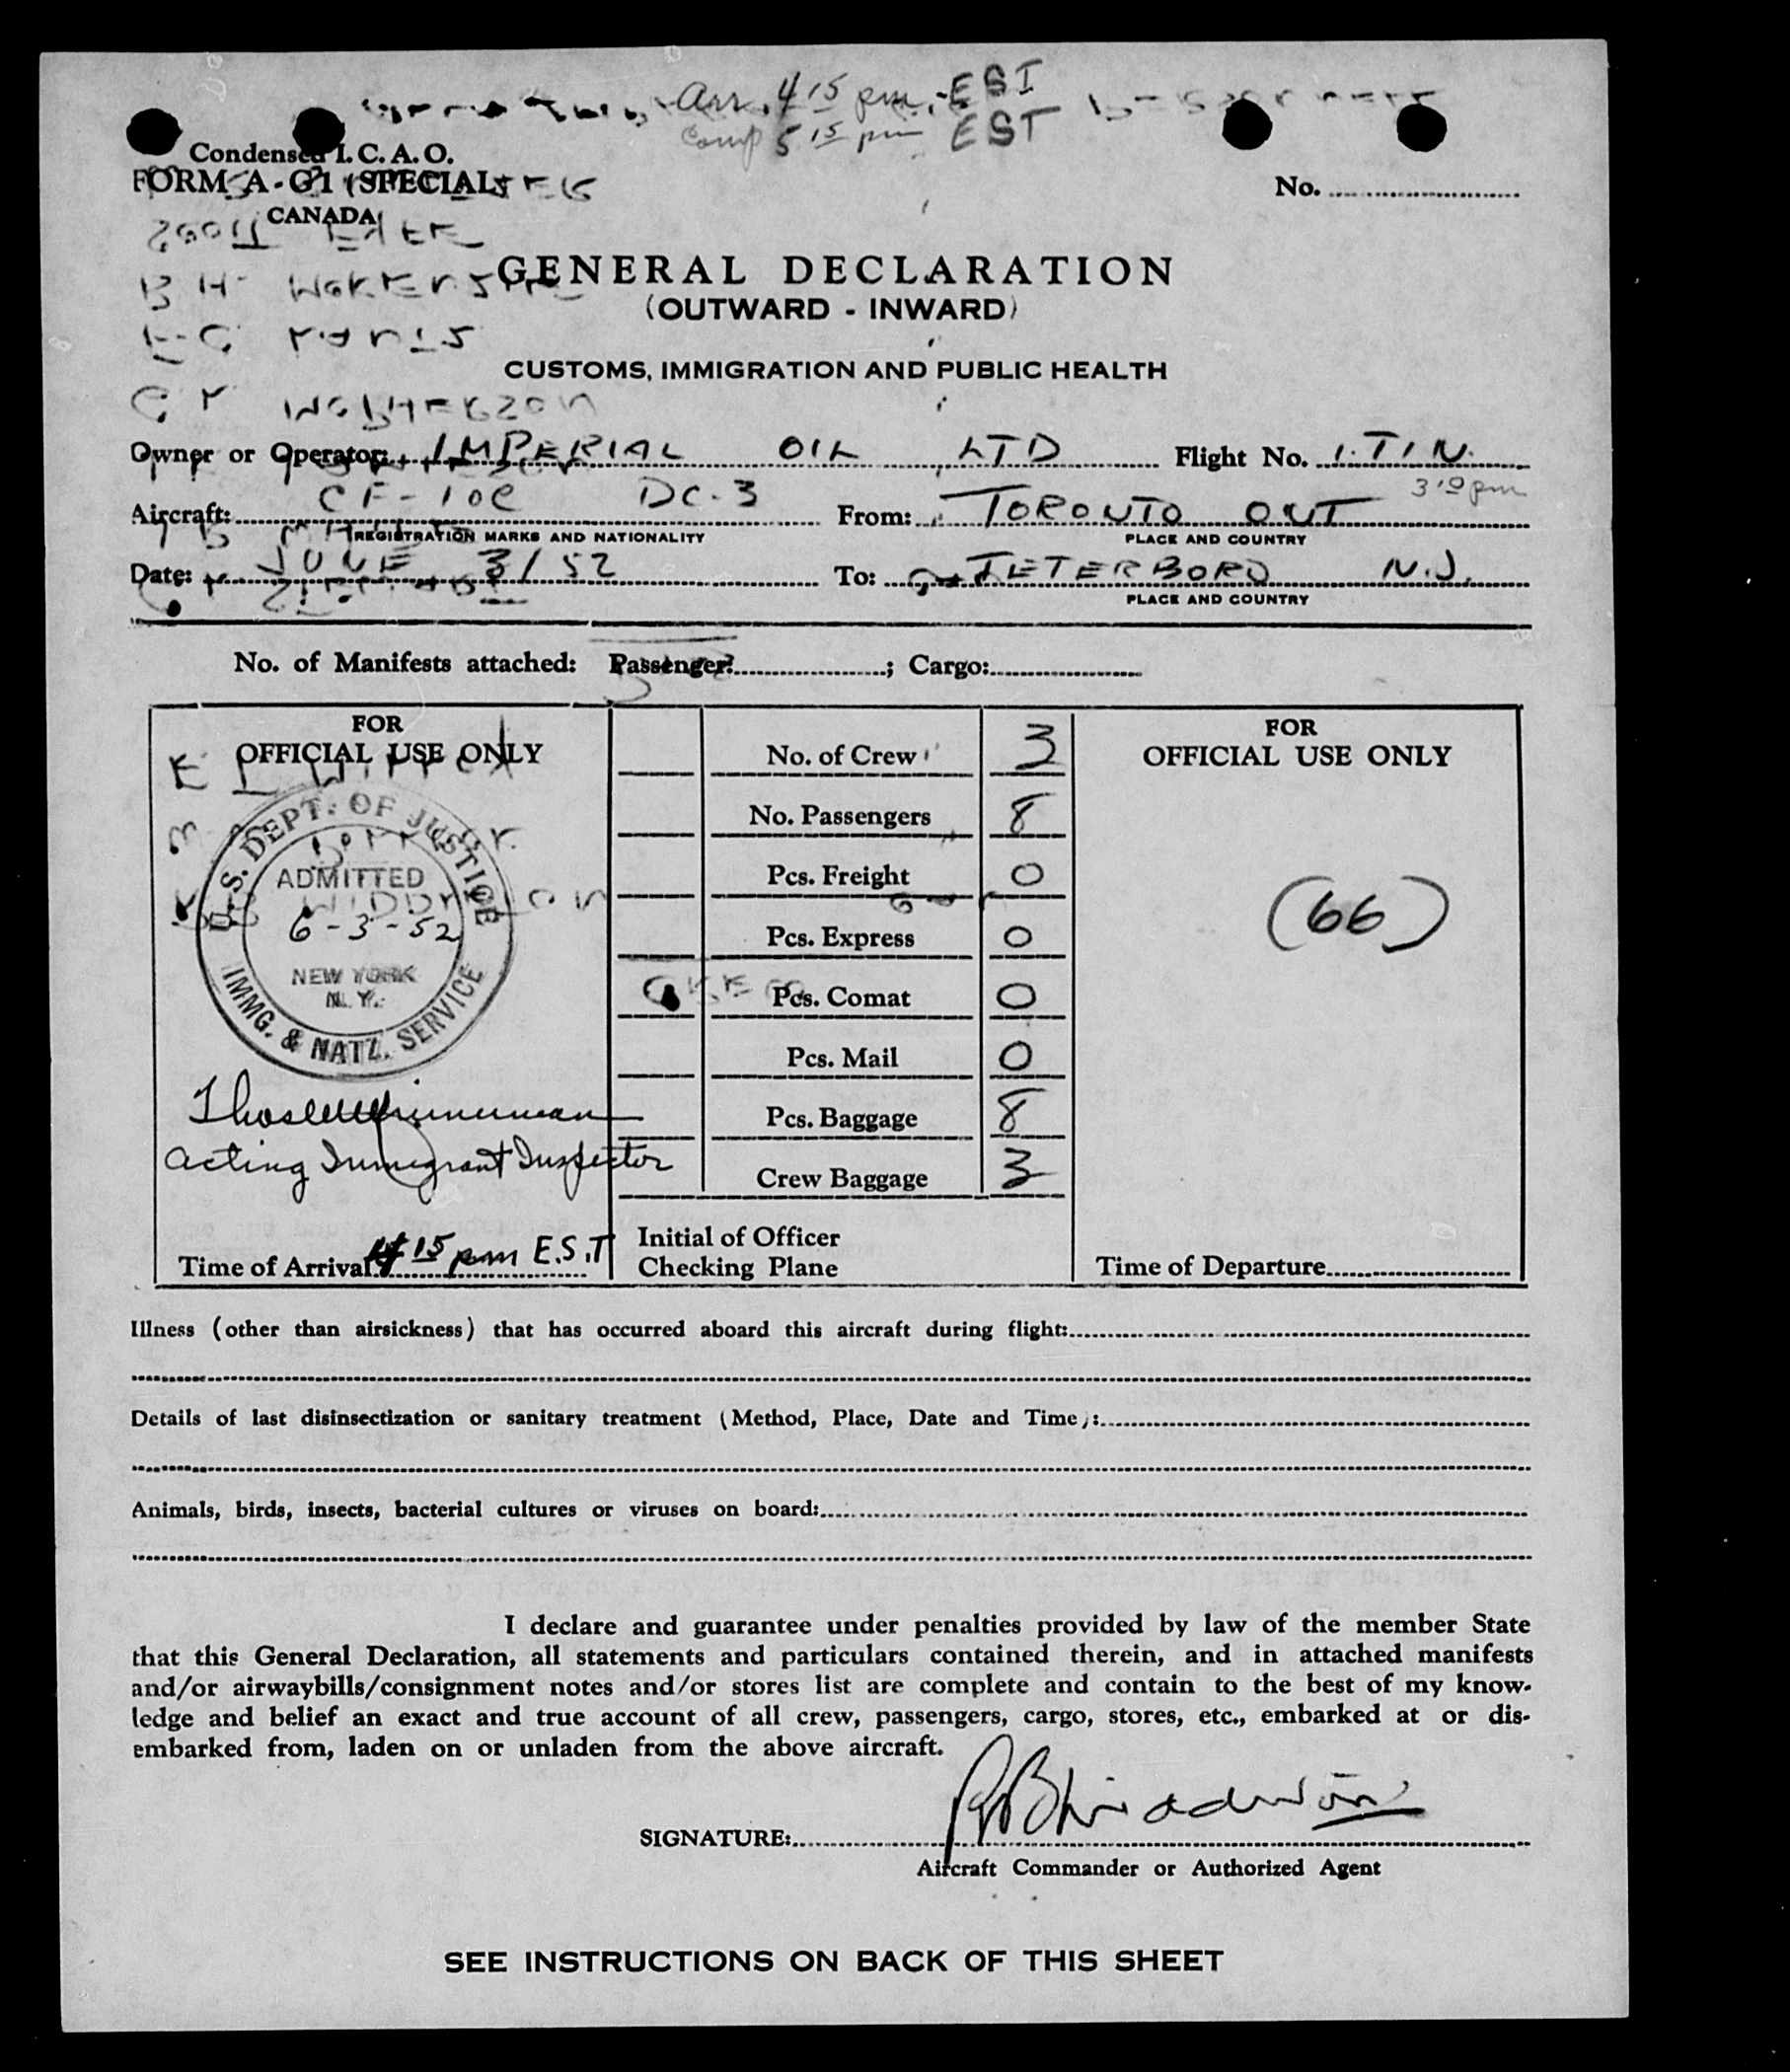 Arr. 4 15 pm. EST
Comp 5 15 pm EST
Condensed I. C. A. O.
FORM A-G1 (SPECIAL)
CANADA
No.
GENERAL DECLARATION
(OUTWARD - INWARD)
CUSTOMS, IMMIGRATION AND PUBLIC HEALTH
Owner or Operator: IMPERIAL OIL LTD Flight No. 1. TIN.
3 10 pm
Aircraft: CF-IOC DC-3 From: TORONTO ONT
REGISTRATION MARKS AND NATIONALITY PLACE AND COUNTRY
Date: JUNE 3/52 To: TETERBORO N.J.
PLACE AND COUNTRY
No. of Manifests attached: Passenger: ; Cargo:
FOR
OFFICIAL USE ONLY
U.S. DEPT. OF JUSTICE
ADMITTED
6-3-52
NEW YORK
N. Y.
IMMG. & NATZ. SERVICE
Acting Immigrant Inspector
Time of Arrival 4 15 pm E.S.T
No. of Crew 3
No. Passengers 8
Pcs. Freight 0
Pcs. Express 0
Pcs. Comat 0
Pcs. Mail 0
Pcs. Baggage 8
Crew Baggage 3
Initial of Officer
Checking Plane
FOR
OFFICIAL USE ONLY
(66)
Time of Departure
Illness (other than airsickness) that has occurred aboard this aircraft during flight:
Details of last disinsectization or sanitary treatment (Method, Place, Date and Time):
Animals, birds, insects, bacterial cultures or viruses on board:
I declare and guarantee under penalties provided by law of the member State
that this General Declaration, all statements and particulars contained therein, and in attached manifests
and/or airwaybills/consignment notes and/or stores list are complete and contain to the best of my know-
ledge and belief an exact and true account of all crew, passengers, cargo, stores, etc., embarked at or dis-
embarked from, laden on or unladen from the above aircraft.
SIGNATURE:
Aircraft Commander or Authorized Agent
SEE INSTRUCTIONS ON BACK OF THIS SHEET